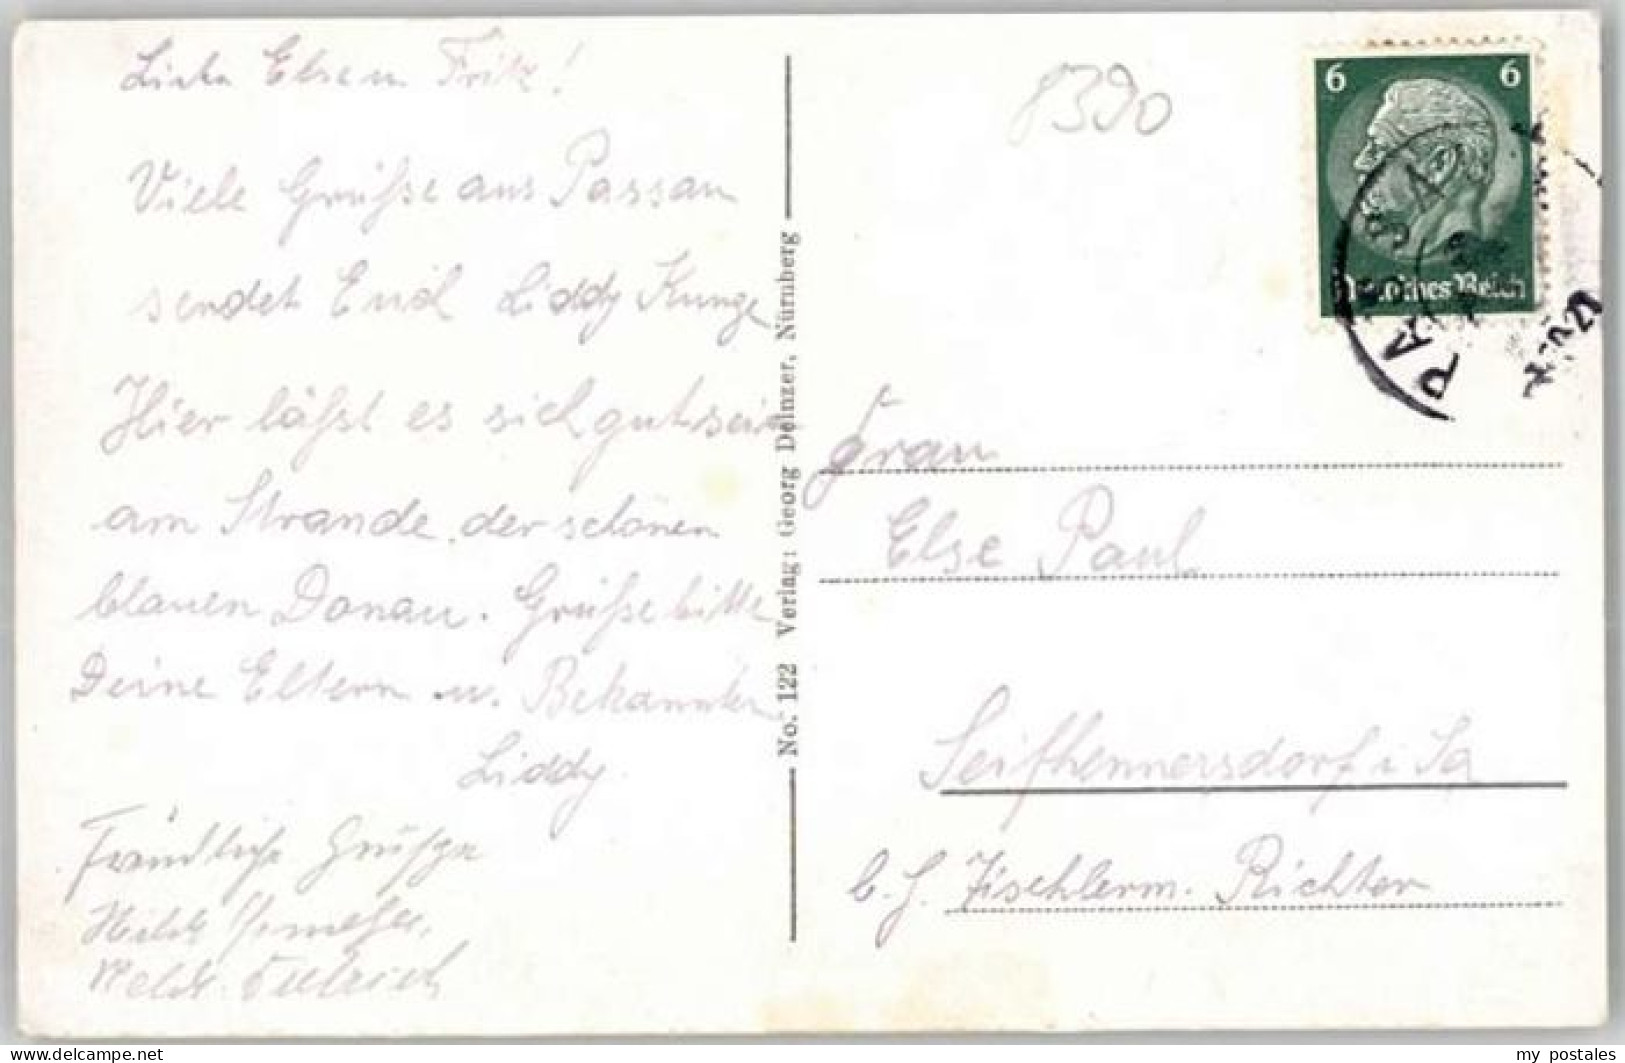 Liebe Else u. Fritz!
Viele Grüße aus Passau
sendet Euch Liddy Kunze
Hier läßt es sich gut sein
am Strande der schönen
blauen Donau. Grüße bitte
Deine Eltern u. Bekannten
Liddy.
Freundliche Grüße
No. 122 Verlag: Georg Deinzer, Nürnberg
8390
6 6
Deutsches Reich
PASSAU
Frau
Else Paul
Seifhennersdorf i Sa
b. H. Tischlerm. Richter
my postales